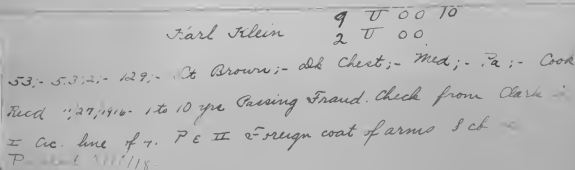 9 U OO 10
Karl Klein 2 U OO
53;- 5.3;2;- 129;- Ct Brown;- Dk Chest;- Med;- Pa;- Cook
Recd 11/27/1916- 1 to 10 yrs Passing Fraud. Check from Clark
I Cic. line of 7. P E II Foreign coat of arms & cb